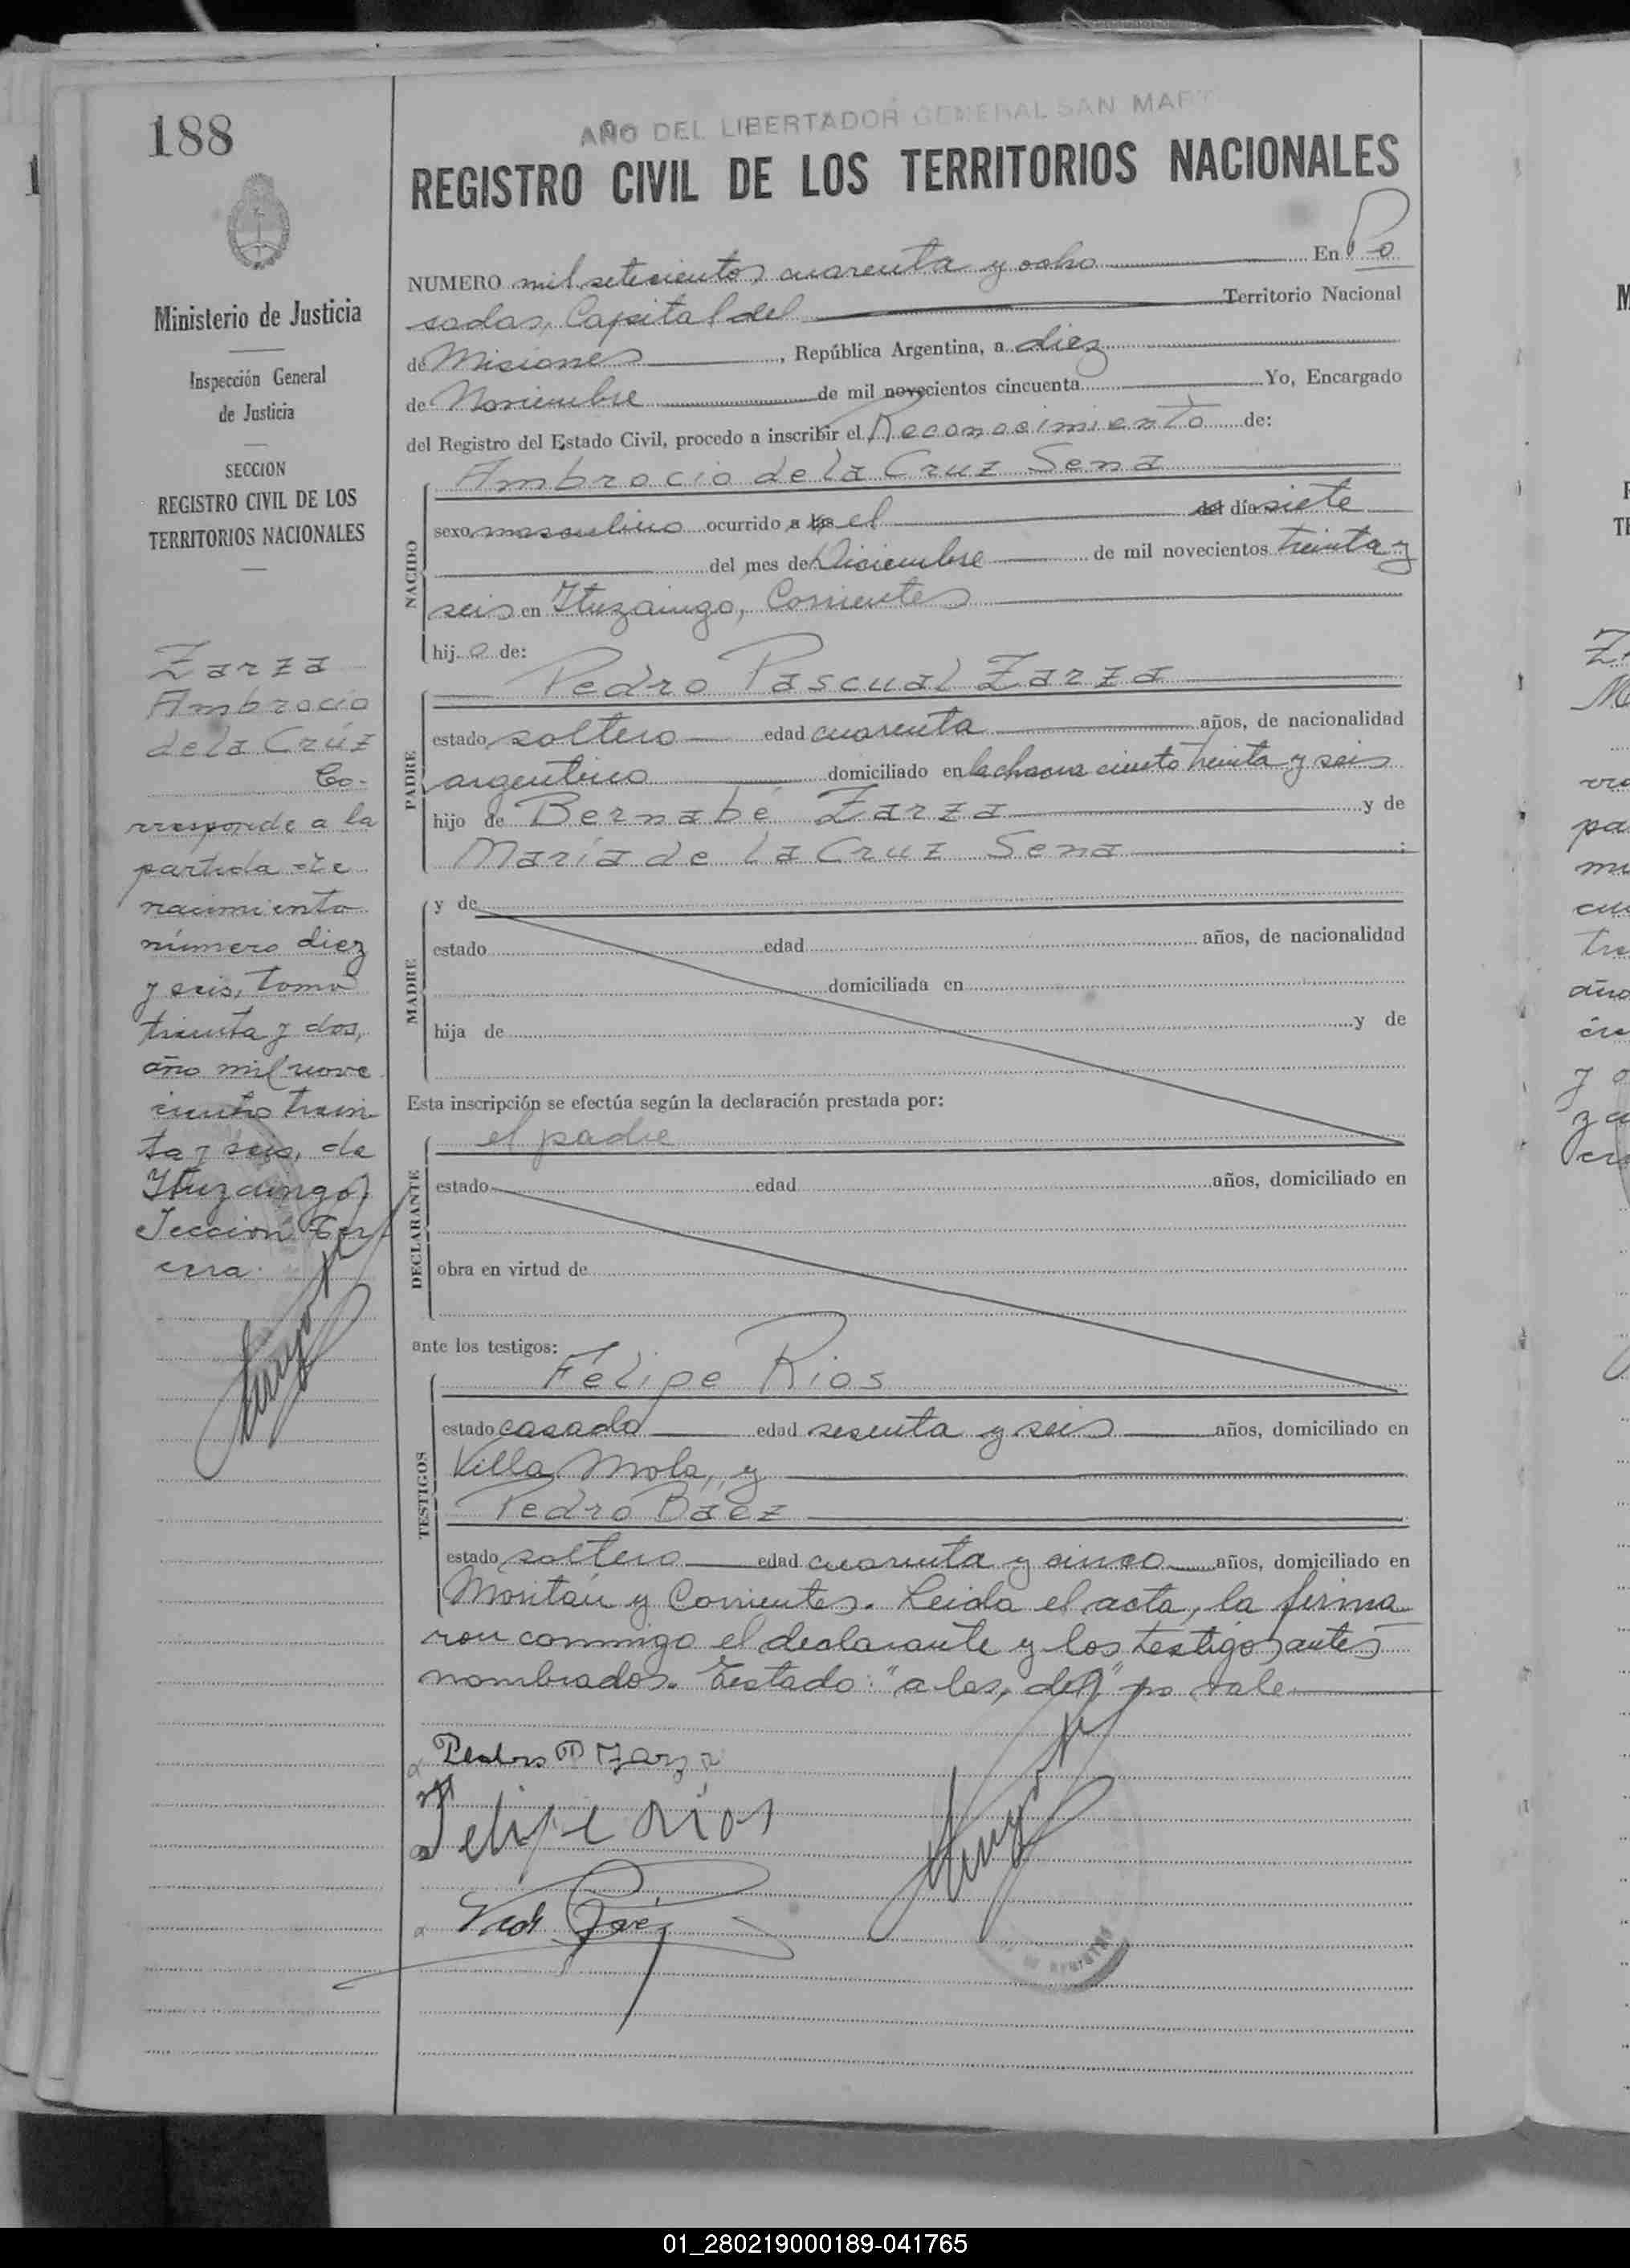 188
AÑO DEL LIBERTADOR GENERAL SAN MART
REGISTRO CIVIL DE LOS TERRITORIOS NACIONALES
Ministerio de Justicia
Inspección General
de Justicia
SECCION
REGISTRO CIVIL DE LOS
TERRITORIOS NACIONALES
Zarza
Ambrocio
de la Crúz
Co-
rresponde a la
partida de
nacimiento
número diez
y seis, tomo
treinta y dos,
año mil nove
cientos trein
ta y seis, de
Ituzaingo,
Sección Ter
cera.
NUMERO mil setecientos cuarenta y ocho En Po
sadas, Capital del Territorio Nacional
de Misiones, República Argentina, a diez
de Noviembre de mil novecientos cincuenta Yo, Encargado
del Registro del Estado Civil, procedo a inscribir el Reconocimiento de:
Ambrocio de la Cruz Sena
NACIDO
sexo masculino ocurrido a las el del día siete
del mes de Diciembre de mil novecientos treinta y
seis en Ituzaingo, Corrientes
hij o de:
Pedro Pascual Zarza
PADRE
estado soltero edad cuarenta años, de nacionalidad
argentino domiciliado en la chacra ciento treinta y seis
hijo de Bernabé Zarza y de
María de la Cruz Sena ;
MADRE
y de
estado edad años, de nacionalidad
domiciliada en
hija de y de
Esta inscripción se efectúa según la declaración prestada por:
el padre
DECLARANTE
estado edad años, domiciliado en
obra en virtud de
ante los testigos:
Felipe Rios
TESTIGOS
estado casado edad sesenta y seis años, domiciliado en
Villa Mola, y
Pedro Báez
estado soltero edad cuarenta y cinco años, domiciliado en
Moritán y Corrientes. Leida el acta, la firma
ron conmigo el declarante y los testigos antes
nombrados. Testado: "a las, del" no vale.
Pedro P Zarza
Felipe Rios
01_280219000189-041765